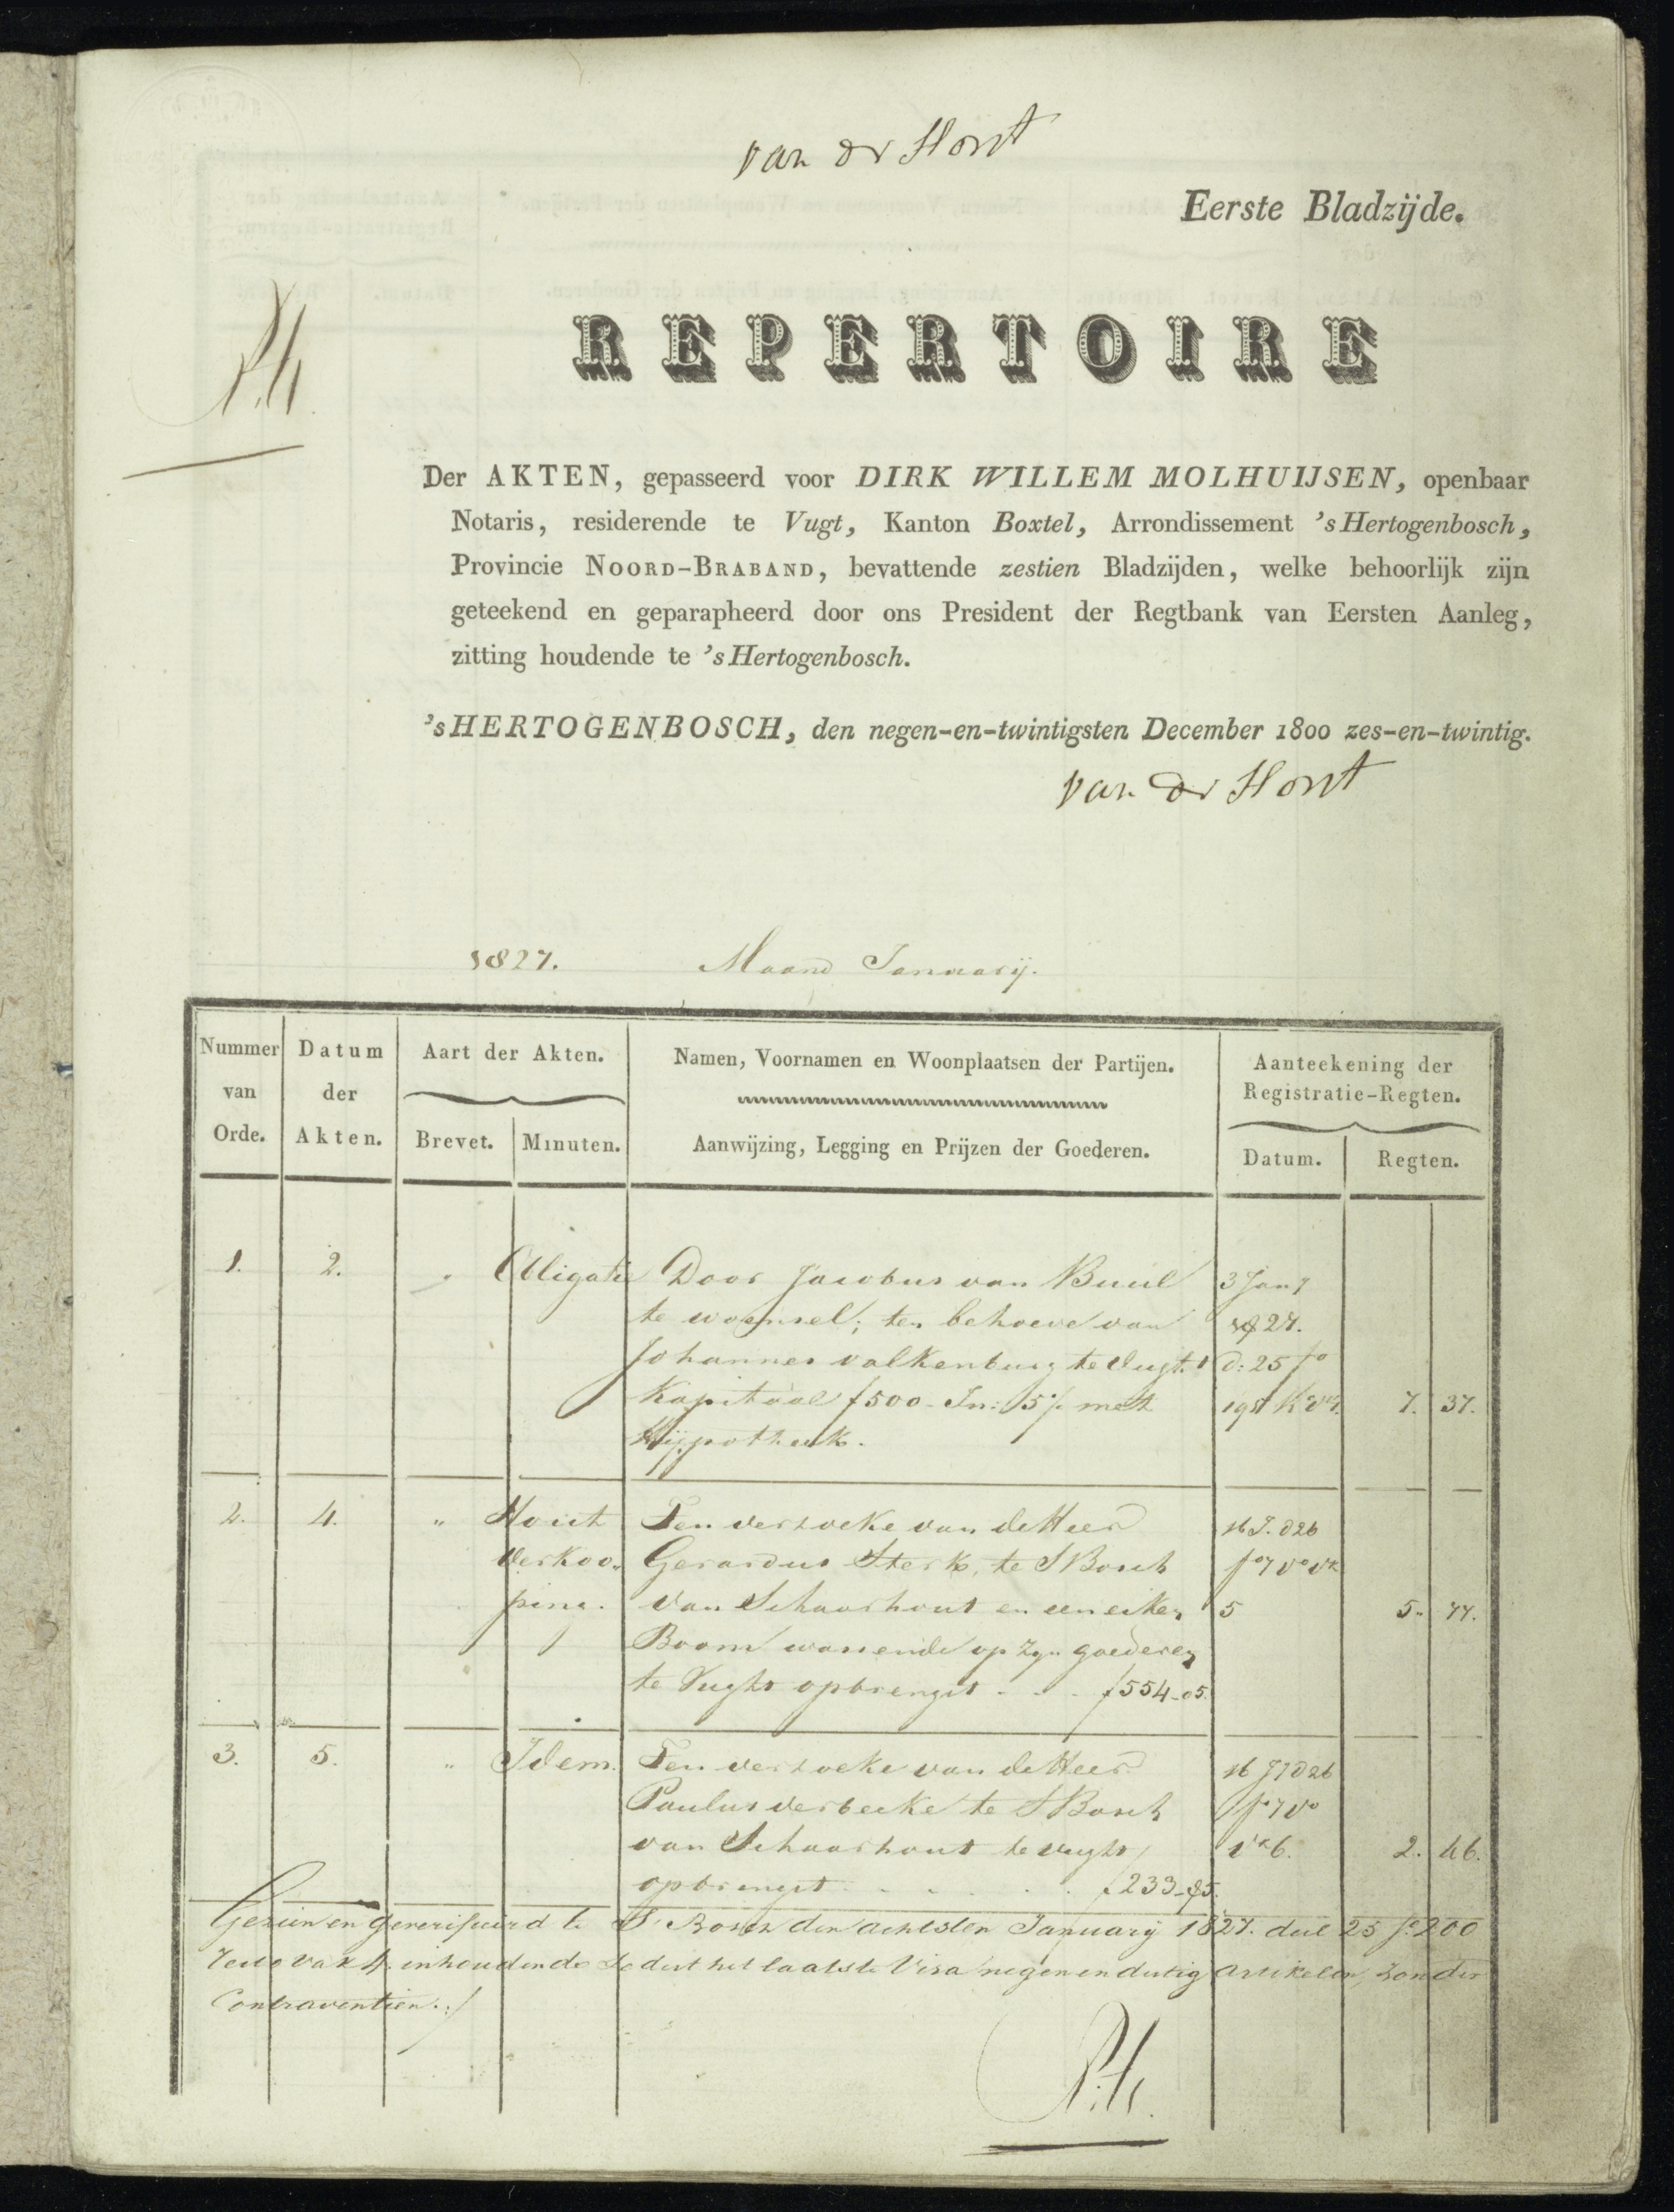 van der Horst
Eerste Bladzijde.
REPERTOIRE
Der AKTEN, gepasseerd voor DIRK WILLEM MOLHUIJSEN, openbaar
Notaris, residerende te Vugt, Kanton Boxtel, Arrondissement 'sHertogenbosch,
Provincie NOORD-BRABAND, bevattende zestien Bladzijden, welke behoorlijk zijn
geteekend en geparapheerd door ons President der Regtbank van Eersten Aanleg,
zitting houdende te 'sHertogenbosch.
'sHERTOGENBOSCH, den negen-en-twintigsten December 1800 zes-en-twintig.
van der Horst
1827. Maand January.
Nummer van Orde.
Datum der Akten.
Aart der Akten.
Brevet. Minuten.
Namen, Voornamen en Woonplaatsen der Partijen.
Aanwijzing, Legging en Prijzen der Goederen.
Aanteekening der
Registratie-Regten.
Datum. Regten.
1. 2. " Obligatie Door Jacobus van Buul 3 Jany
te woensel; ten behoeve van 1827.
Johannes valkenburg te Vugt. d: 25 fo
Kapitaal f500- In: 5% met 7. 37.
Hypotheek.
2. 4. " Hout Ten verzoeke van de Heer 16 J. d26
verkoo- Gerardus Sterk, te SBosch fo 7 vo vk
ping. van Schaarhout en een eiken 5 5" 77.
Boom wassende op zyn goederen
te Vught opbrengst - - - f554-05.
3. 5. " Idem. Ten verzoeke van de Heer 16 Jy d26
Paulus verbeeke te SBosch fo 7 vo
van Schaarhout te vught vk 6. 2. 46.
opbrengst f233-85.
Gezien en geverifieerd te S' Bosch den achtsten January 1827. deel 25 fo 200
recto vak 4 inhoudende sedert het laatste Visa negen en dertig artikelen, zonder
Contraventien.